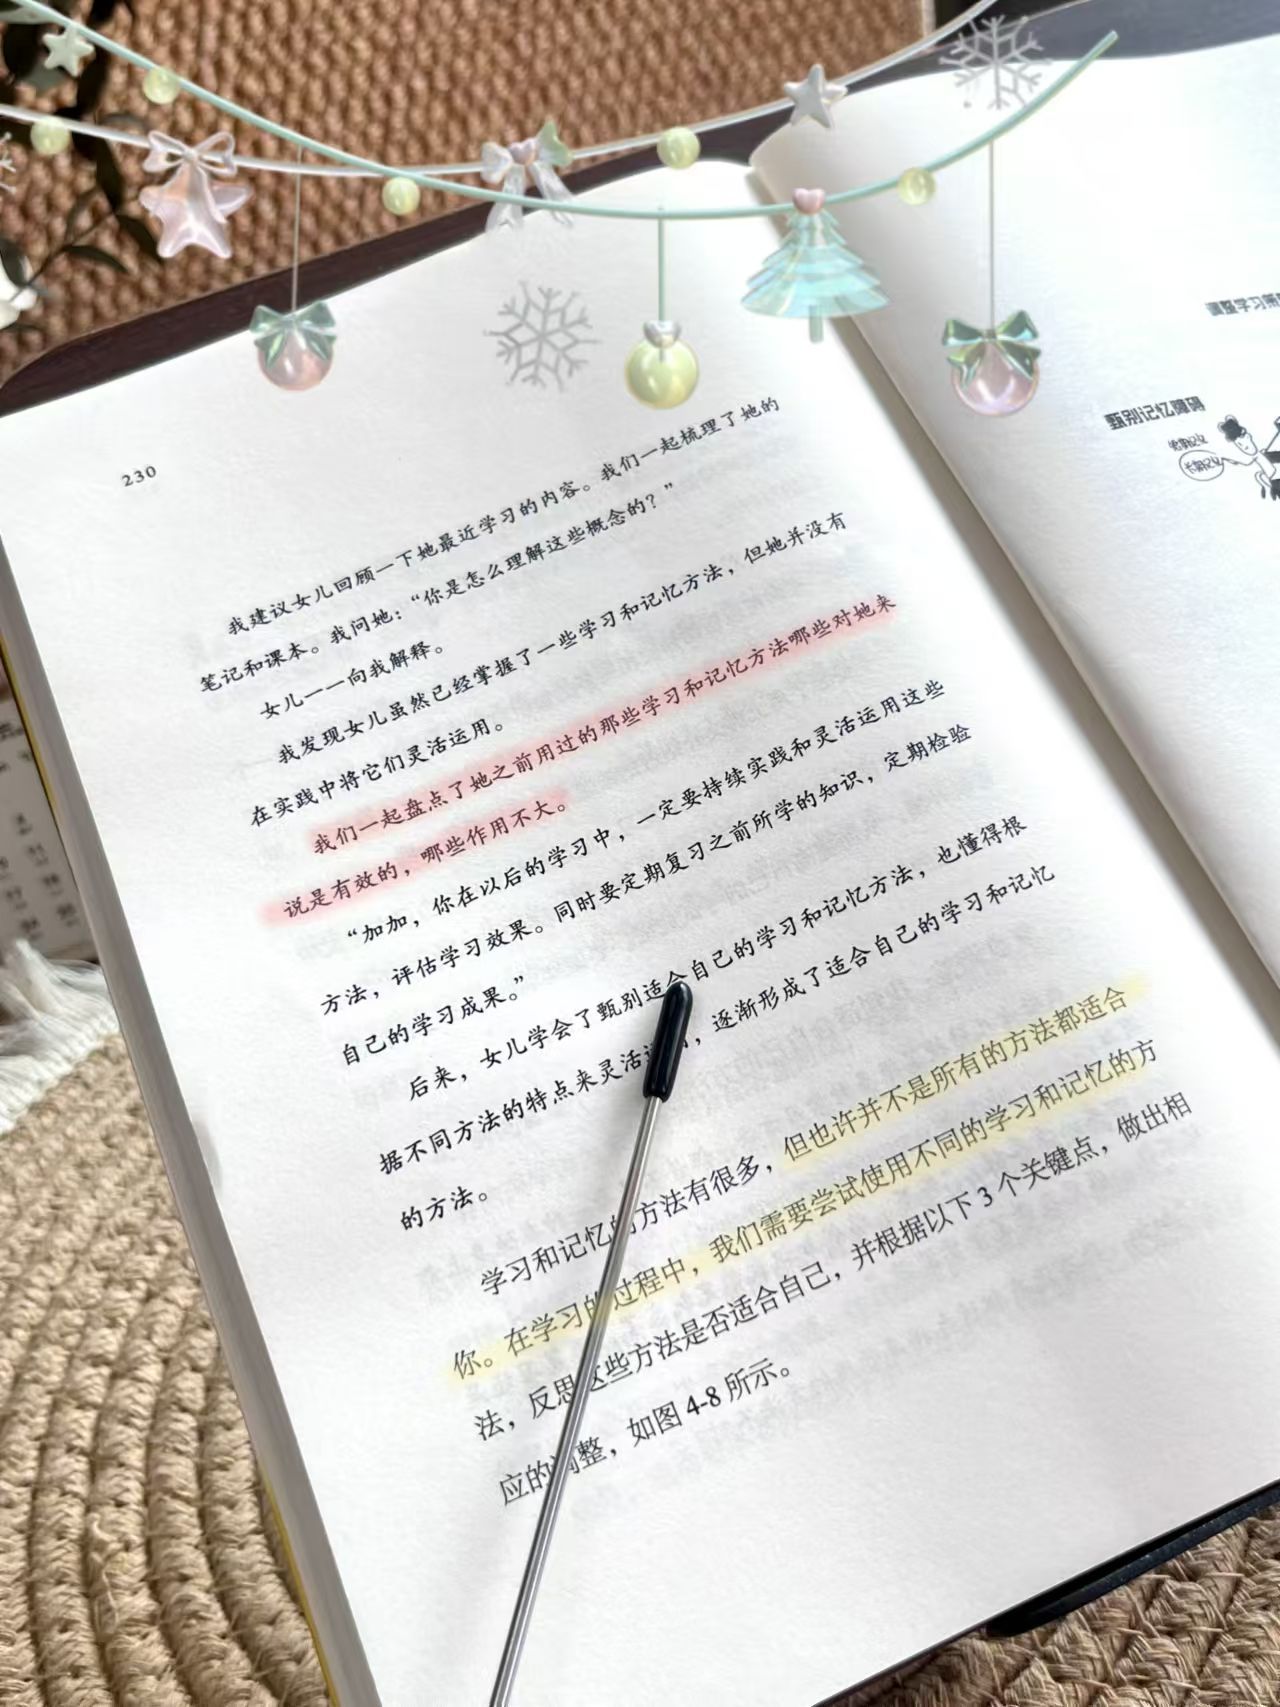 230
我建议女儿回顾一下她最近学习的内容。我们一起梳理了她的
笔记和课本。我问她：“你是怎么理解这些概念的？”
女儿一一向我解释。
我发现女儿虽然已经掌握了一些学习和记忆方法，但她并没有
在实践中将它们灵活运用。
我们一起盘点了她之前用过的那些学习和记忆方法哪些对她来
说是有效的，哪些作用不大。
“加加，你在以后的学习中，一定要持续实践和灵活运用这些
方法，评估学习效果。同时要定期复习之前所学的知识，定期检验
自己的学习成果。”
后来，女儿学会了甄别适合自己的学习和记忆方法，也懂得根
据不同方法的特点来灵活，逐渐形成了适合自己的学习和记忆
的方法。
学习和记忆的方法有很多，但也许并不是所有的方法都适合
你。在学习的过程中，我们需要尝试使用不同的学习和记忆的方
法，反思这些方法是否适合自己，并根据以下 3 个关键点，做出相
应的调整，如图 4-8 所示。
调整学习策
甄别记忆障碍